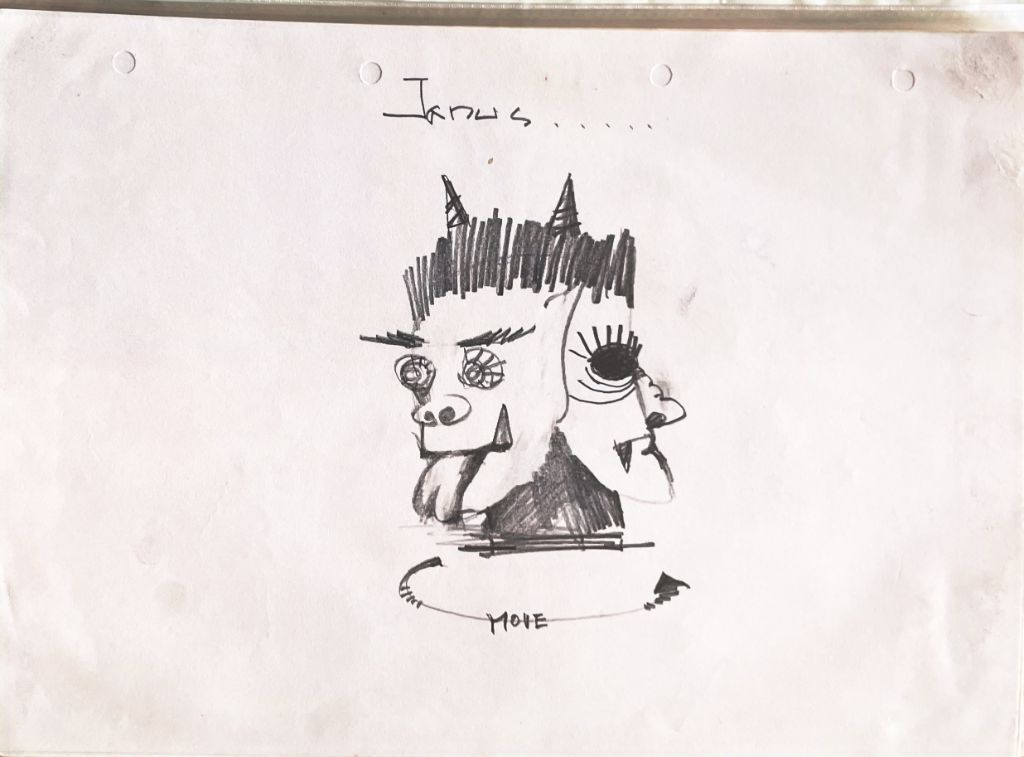 Janus......
MOVE